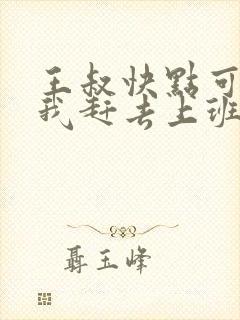 王叔快點可
我赶去上班
聶玉峰